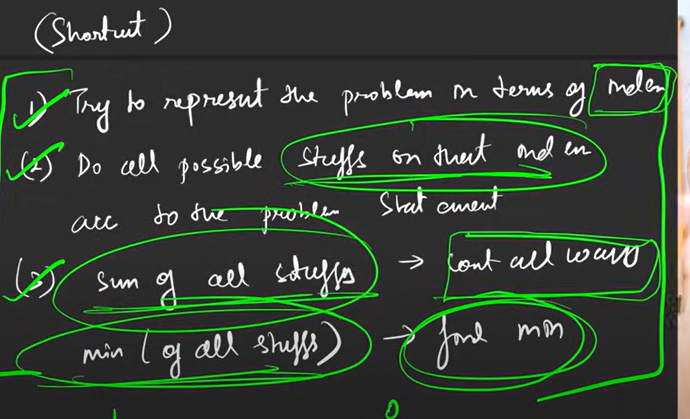 (Shortcut)
1) Try to represent the problem in terms of index
(2) Do all possible stuffs on that index
acc to the problem statement
(3) sum of all stuffs → count all ways
min (of all stuffs) → find min